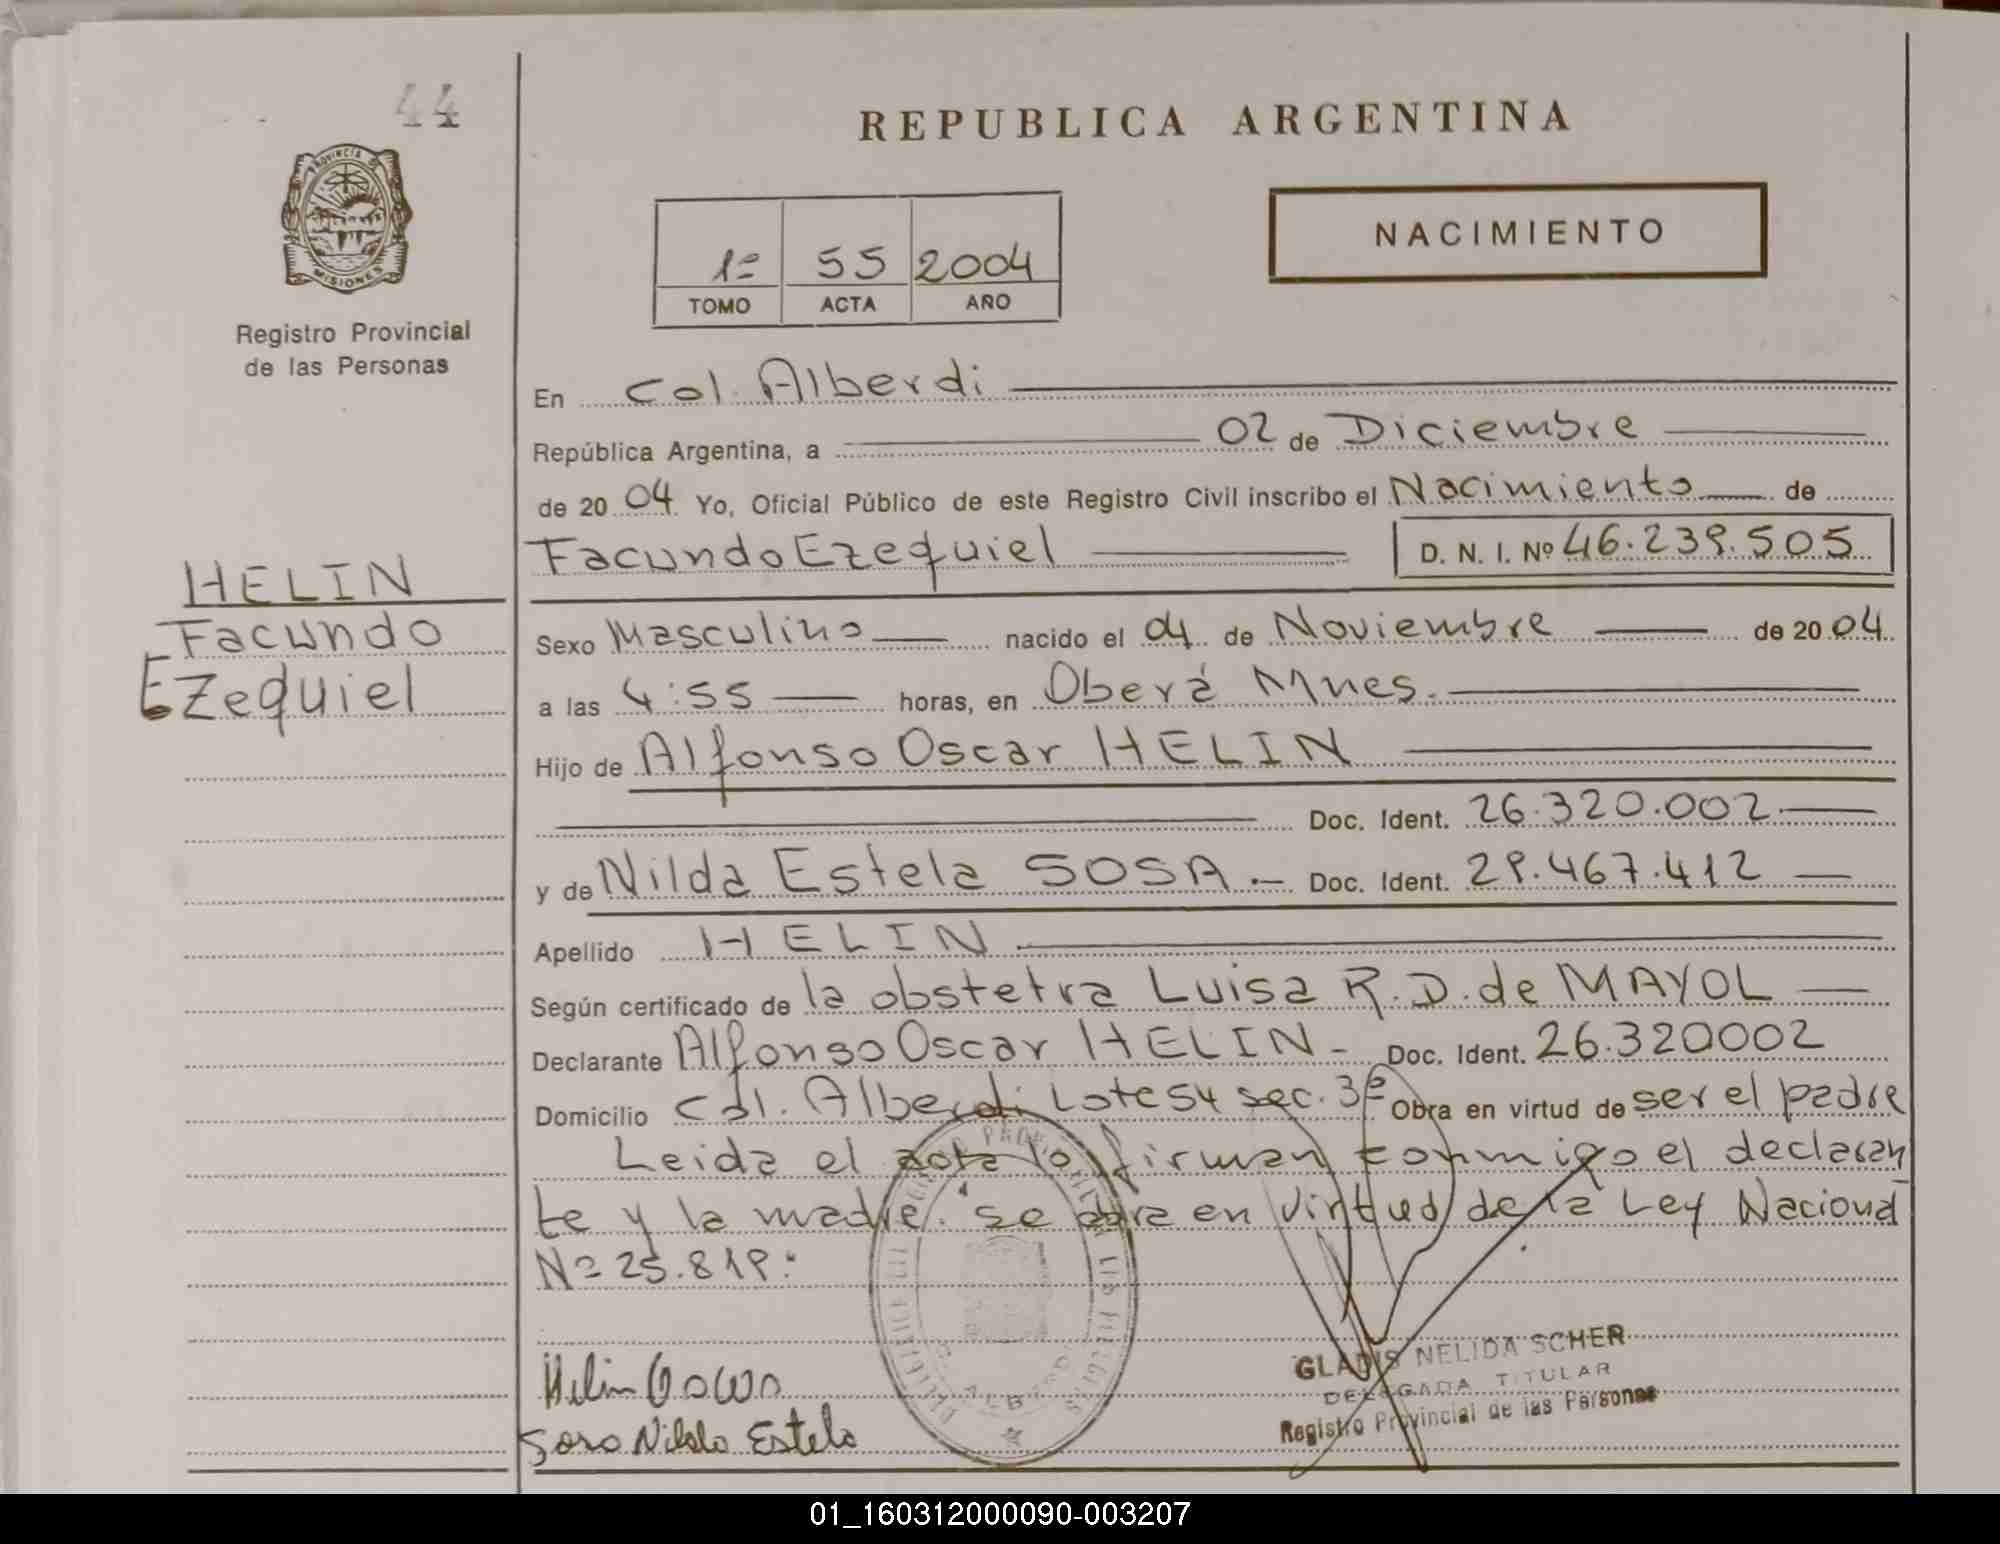 44
PROVINCIA DE
MISIONES
Registro Provincial
de las Personas
HELIN
Facundo
Ezequiel
REPUBLICA ARGENTINA
1º 55 2004
TOMO ACTA AÑO
NACIMIENTO
En Col. Alberdi
República Argentina, a 02 de Diciembre
de 20 04 Yo, Oficial Público de este Registro Civil inscribo el Nacimiento de
Facundo Ezequiel D. N. I. Nº 46.239.505
Sexo Masculino nacido el 04 de Noviembre de 20 04
a las 4:55 horas, en Oberá Mnes.
Hijo de Alfonso Oscar HELIN
Doc. Ident. 26.320.002
y de Nilda Estela SOSA.- Doc. Ident. 29.467.412
Apellido HELIN
Según certificado de la obstetra Luisa R. D. de MAYOL
Declarante Alfonso Oscar HELIN- Doc. Ident. 26.320002
Domicilio Col. Alberdi Lote 54 sec. 3º Obra en virtud de ser el padre
Leida el acta lo firman conmigo el declaran
te y la madre. se obra en virtud de la Ley Nacional
Nº 25.819:
Helin Oscar
Sosa Nilda Estela
GLADIS NELIDA SCHER
DELEGADA TITULAR
Registro Provincial de las Personas
01_160312000090-003207